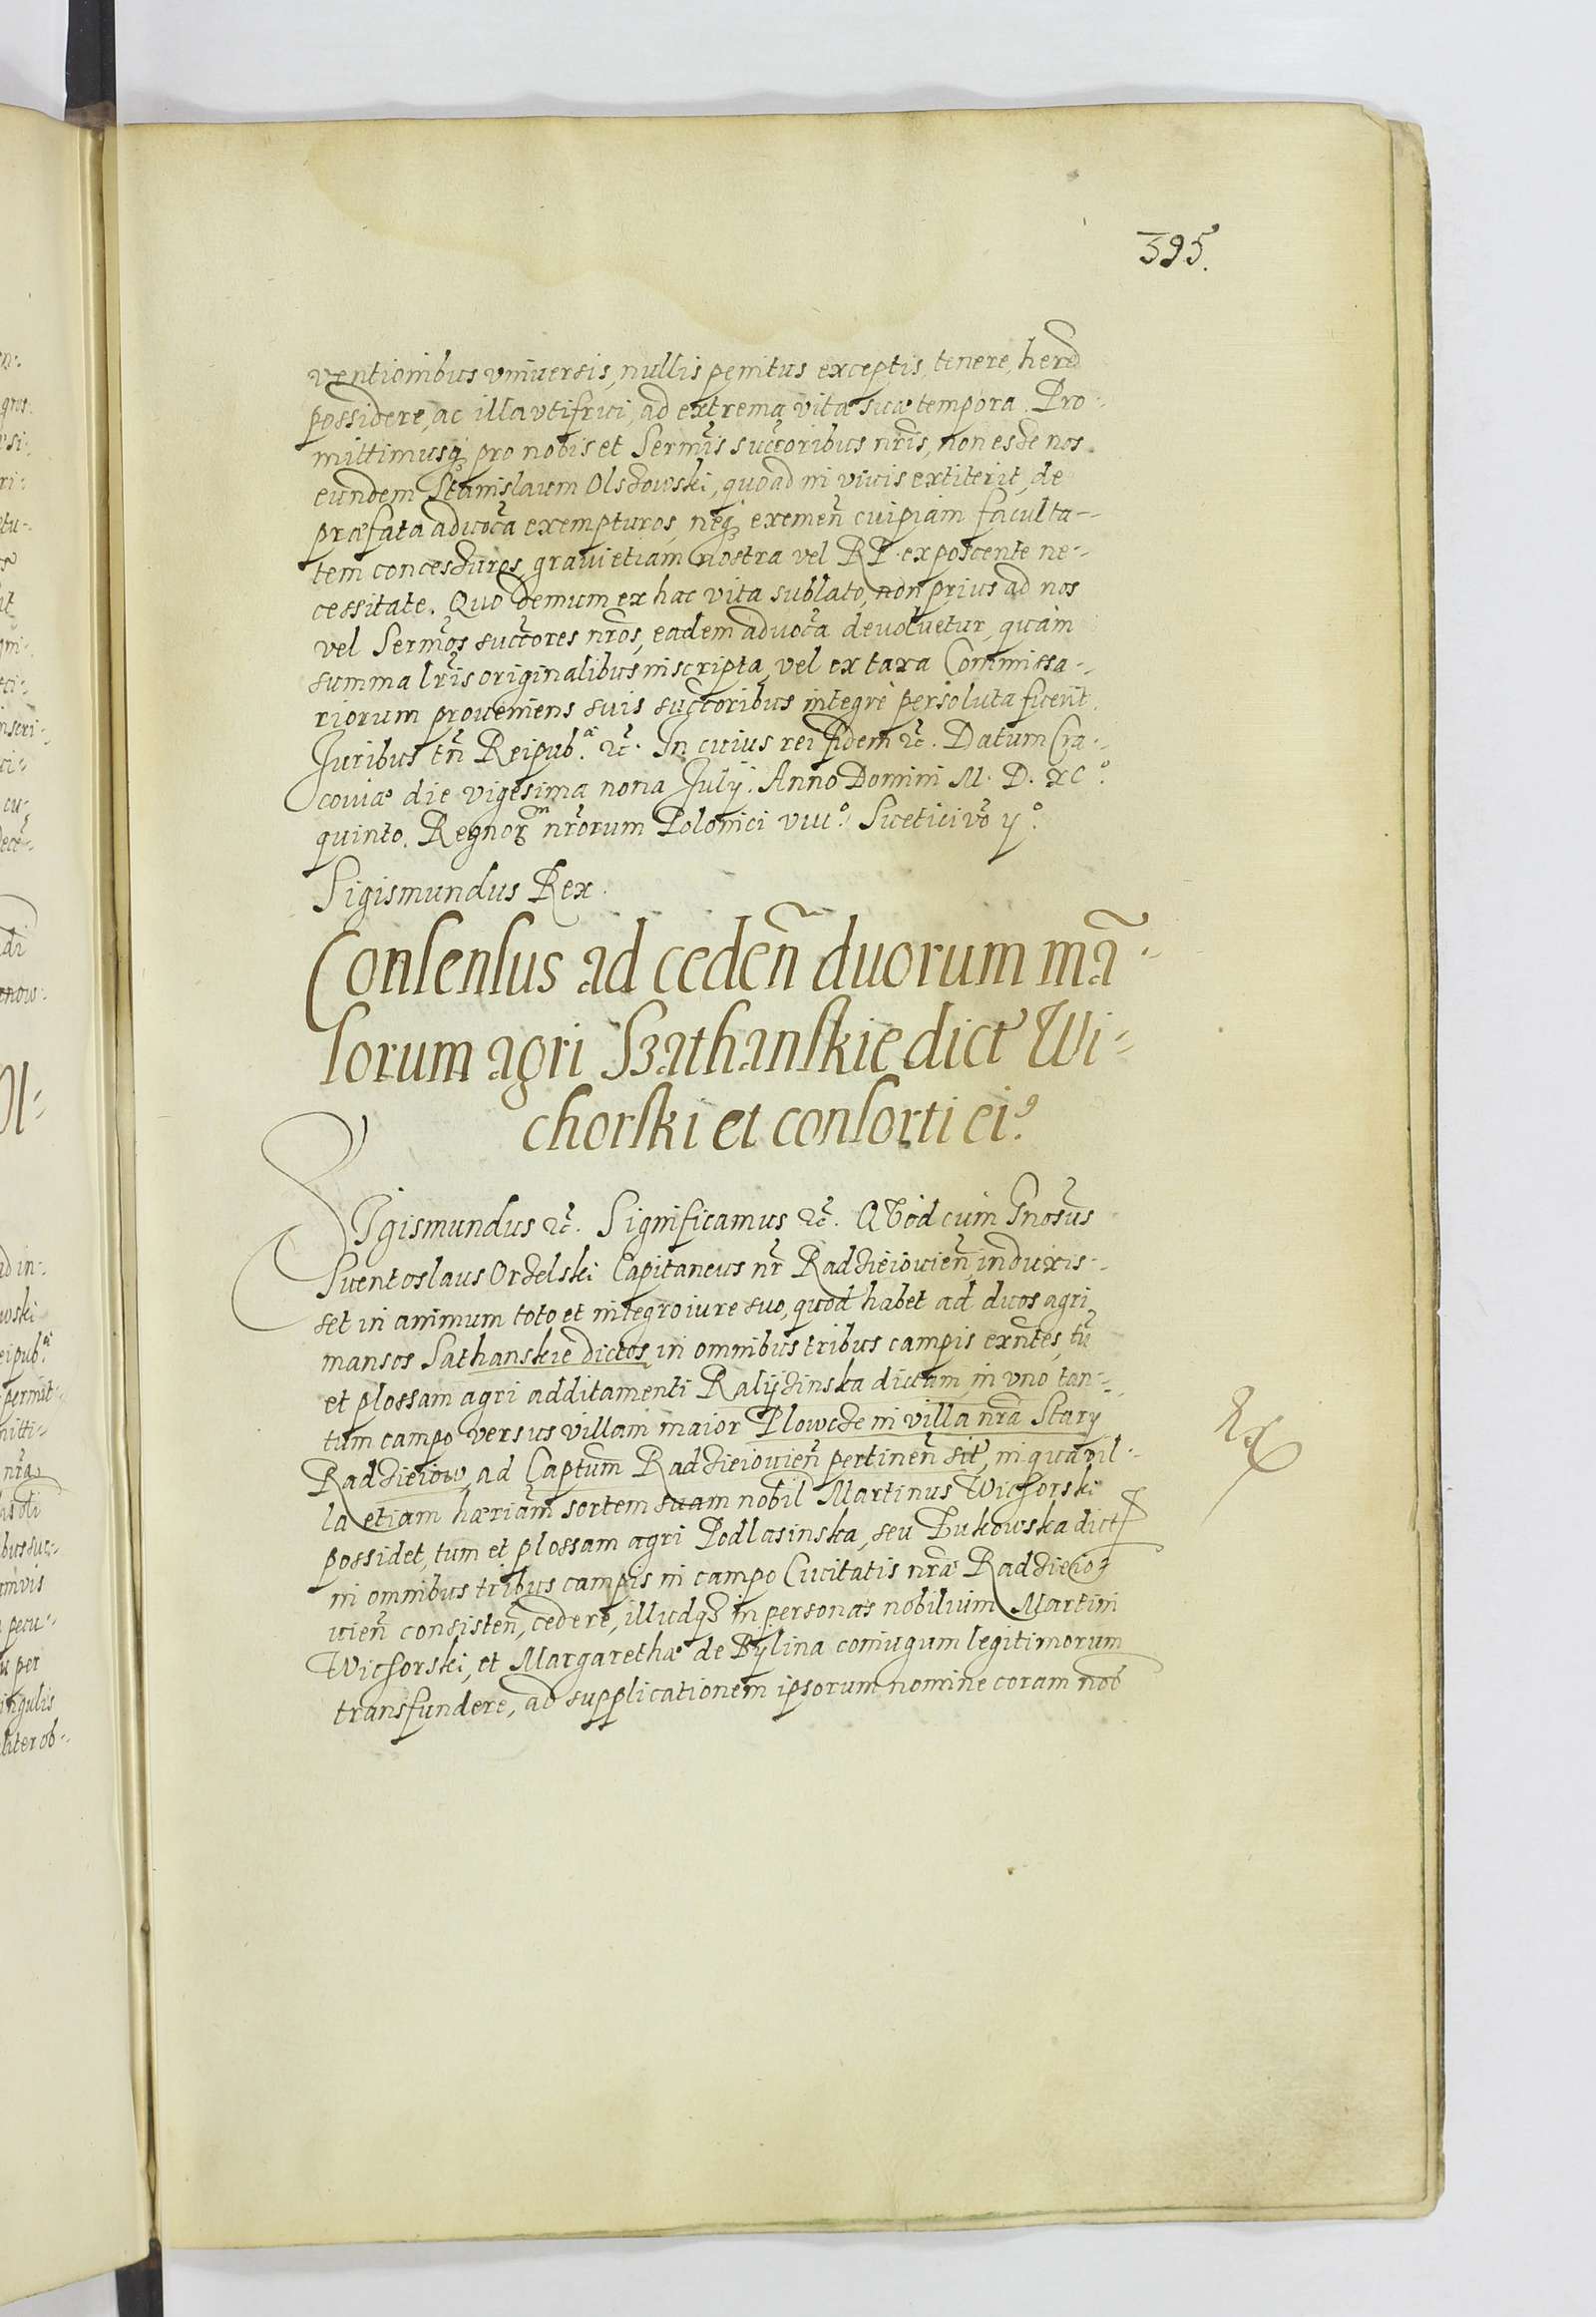 395.
ventionibus vniuersis, nullis penitus exceptis, tenere, here͠d
possidere, ac illa vtifrui, ad extrema vitæ suæ tempora. Pro-
mittimusq; pro nobis et Serm̃is succ̃oribus nr̃is, non esse nos
eundem Stanislaum Olszowski, quoad in viuis extiterit, de
præfata aduoc̃a exempturos, neq; eximen̄ cuipiam faculta-
tem concessuros, graui etiam nostra vel RP. exposcente ne-
cessitate. Quo demum ex hac vita sublato, non prius ad nos
vel Serm̃os succ̃ores nr̃os, eadem aduoc̃a deuoluetur, quàm
summa lr̃is originalibus inscripta, vel ex taxa Commissa-
riorum proueniens suis succ̃oribus integrè persoluta fuerit.
Juribus tn̄ Reipub.ᵃᵉ &c̃. In cuius rei fidem &c̃. Datum Cra-
couiæ die vigesima nona Julij. Anno Domini M. D. XC°
quinto. Regnoꝝ nr̃orum Polonici viii°. Suetici vo͠ ij°.
Sigismundus Rex.
Consensus ad ceden̄ duorum mã-
sorum agri Szathanskie dict̃ Wi-
chorski et consorti ei⁹.
SIgismundus &c̃. Significamus &c̃. QVod cum Gnõsus
Suentoslaus Orzelski Capitaneus nr̃ Radzieiouien̄, induxis-
set in animum toto et integro iure suo, quod habet ad duos agri
mansos Sathanskie dictos in omnibus tribus campis exñtes, tũ
et plossam agri additamenti Raliјzinska dictam, in vno tan-
tum campo versus villam maior Plowcze in villa nr̃a Stary
Radzieiow, ad Cap̃tum Radzieiouien̄ pertinen̄ sit̃, in qua vil-
la etiam hæriam̃ sortem suam nobil Martinus Wichorski
possidet, tum et plossam agri Podlasinska, seu Zukowska dict̃
in omnibus tribus campis in campo Ciuitatis nr̃æ Radzieio-
uien̄ consisten̄, cedere, illudq; in personas nobilium Martini
Wichorski, et Margarethæ de Bylina coniugum legitimorum
transfundere, ad supplicationem ipsorum nomine coram nob̃